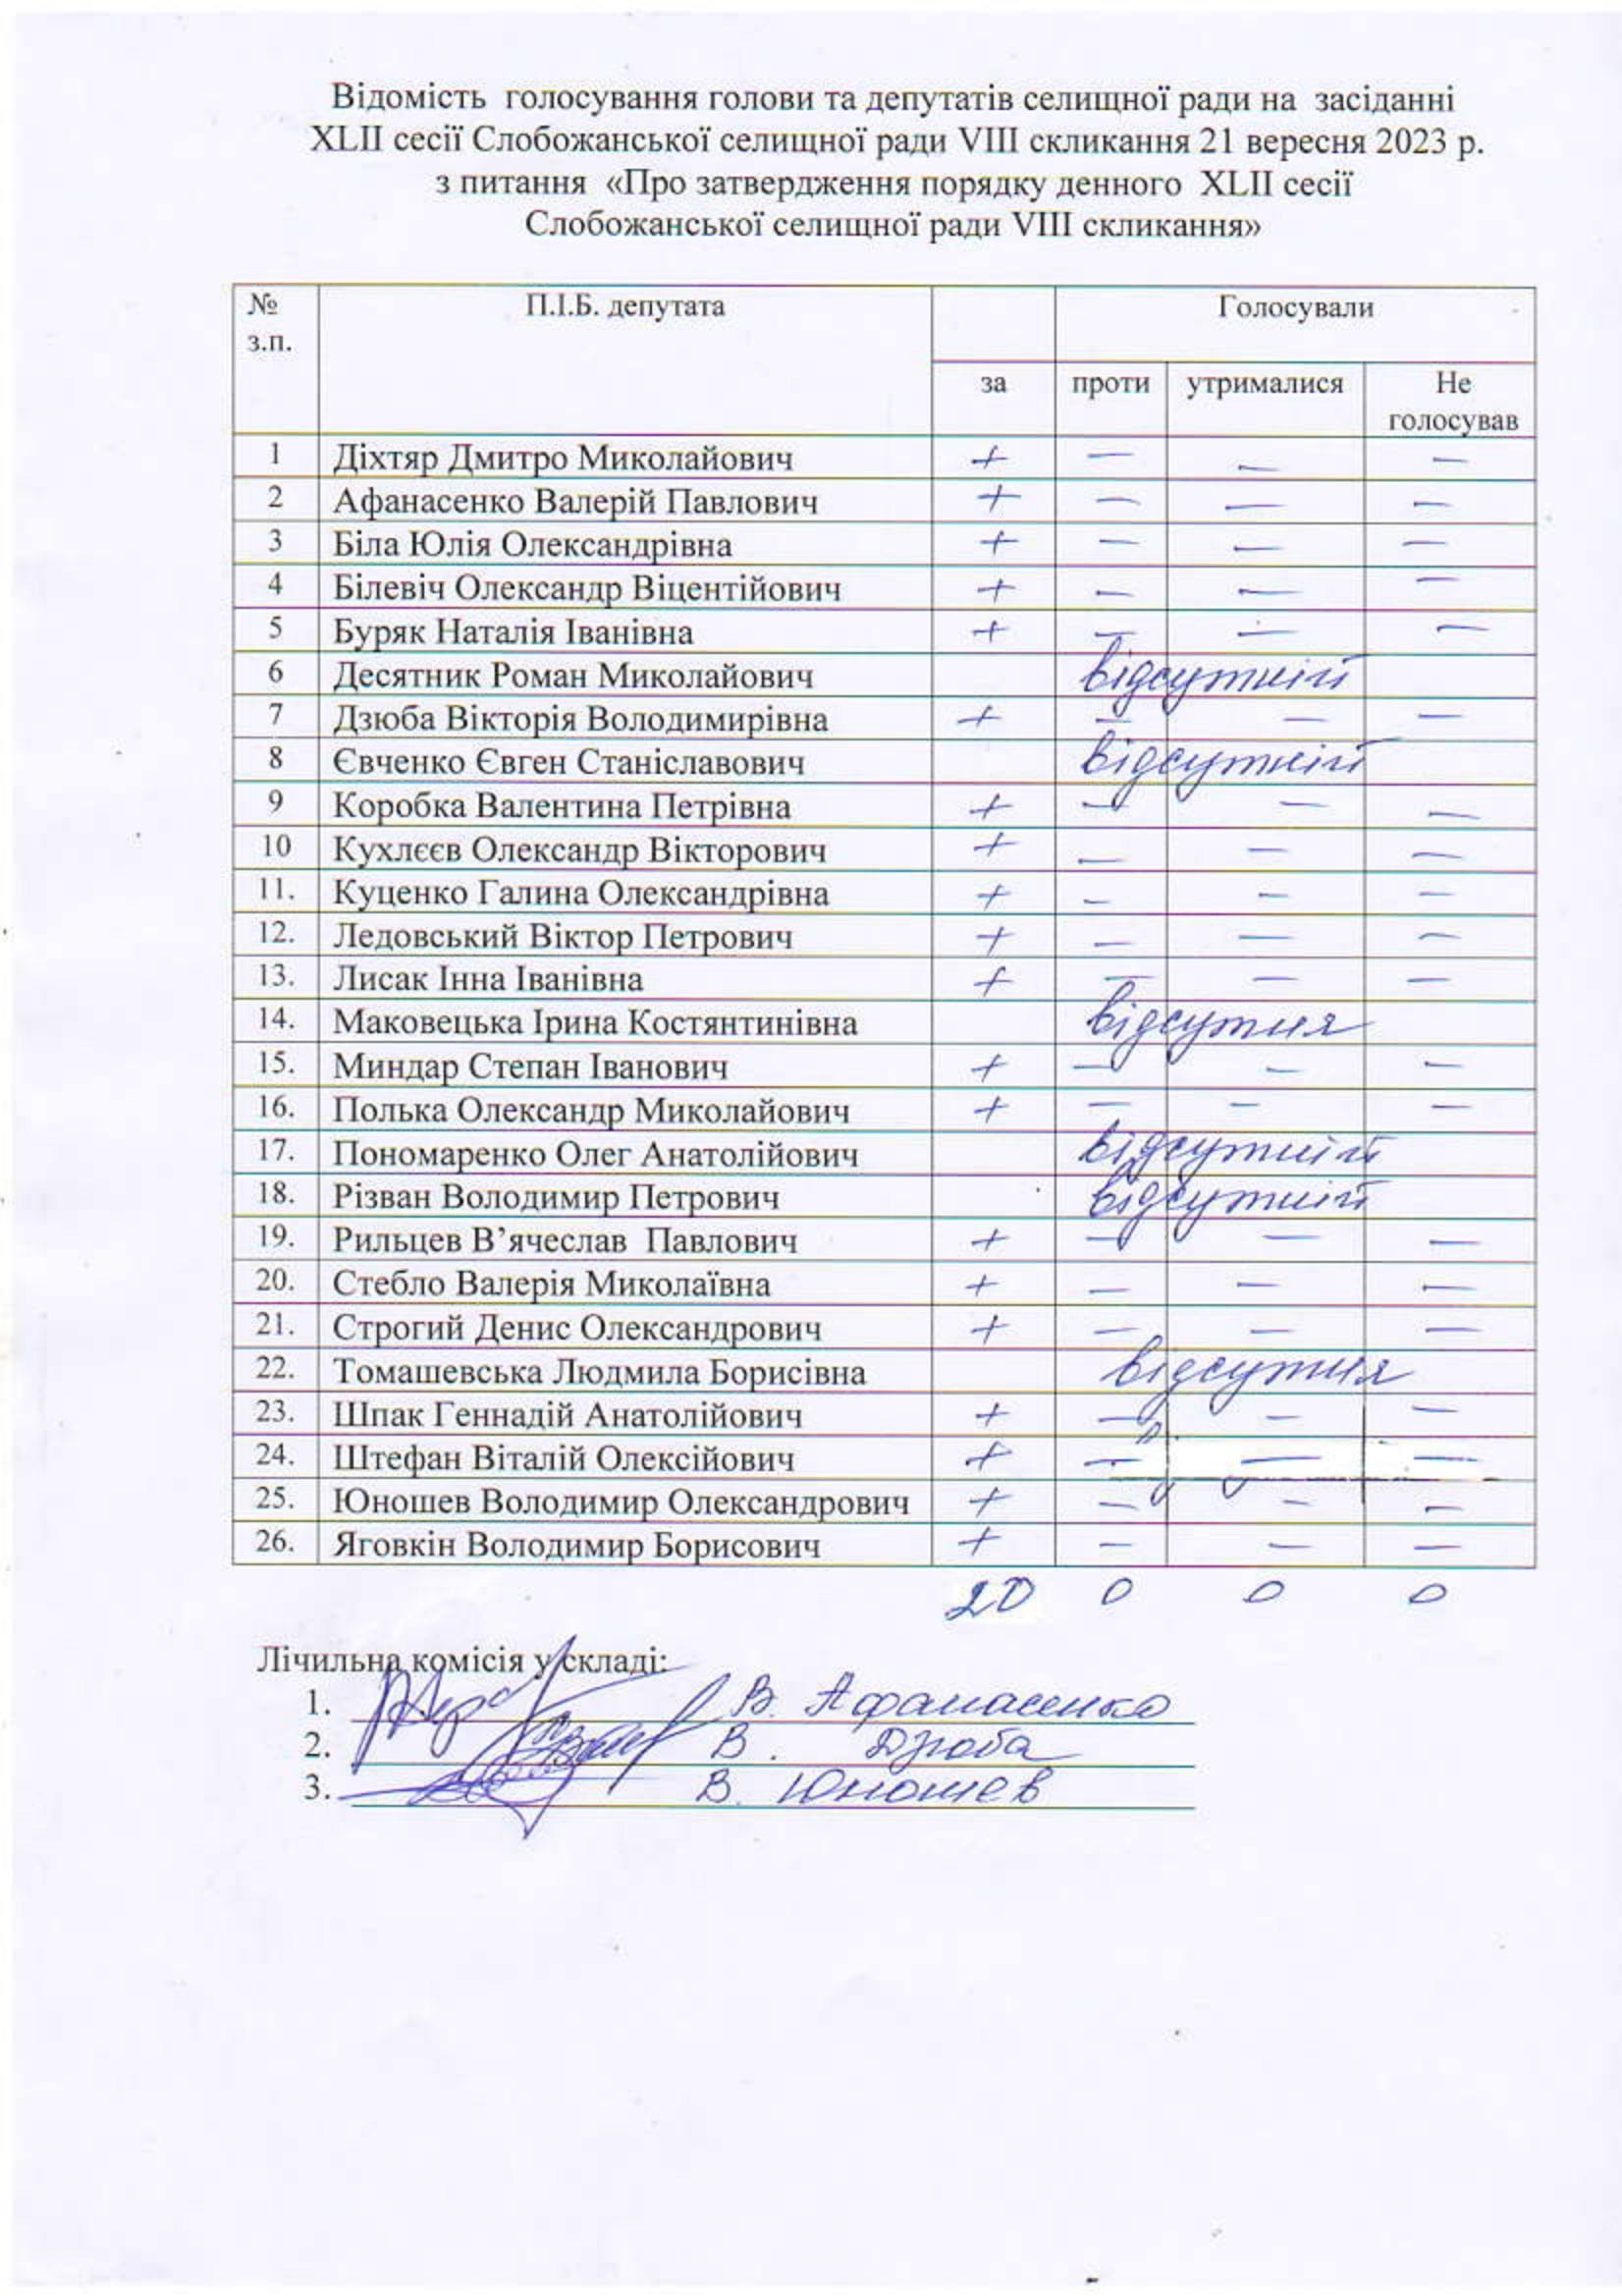 Відомість голосування голови та депутатів селищної ради на засіданні
XLII сесії Слобожанської селищної ради VIII скликання 21 вересня 2023 р.
з питання «Про затвердження порядку денного XLII сесії
Слобожанської селищної ради VIII скликання»
№ з.п. П.І.Б. депутата Голосували
за проти утрималися Не голосував
1 Діхтяр Дмитро Миколайович + — — —
2 Афанасенко Валерій Павлович + — — —
3 Біла Юлія Олександрівна + — — —
4 Білевіч Олександр Віцентійович + — — —
5 Буряк Наталія Іванівна + — — —
6 Десятник Роман Миколайович відсутній
7 Дзюба Вікторія Володимирівна + — — —
8 Євченко Євген Станіславович відсутній
9 Коробка Валентина Петрівна + — — —
10 Кухлєєв Олександр Вікторович + — — —
11. Куценко Галина Олександрівна + — — —
12. Ледовський Віктор Петрович + — — —
13. Лисак Інна Іванівна + — — —
14. Маковецька Ірина Костянтинівна відсутня
15. Миндар Степан Іванович + — — —
16. Полька Олександр Миколайович + — — —
17. Пономаренко Олег Анатолійович відсутній
18. Різван Володимир Петрович відсутній
19. Рильцев В’ячеслав Павлович + — — —
20. Стебло Валерія Миколаївна + — — —
21. Строгий Денис Олександрович + — — —
22. Томашевська Людмила Борисівна відсутня
23. Шпак Геннадій Анатолійович + — — —
24. Штефан Віталій Олексійович + — — —
25. Юношев Володимир Олександрович + — — —
26. Яговкін Володимир Борисович + — — —
20 0 0 0
Лічильна комісія у складі:
1. В. Афанасенко
2. В. Дзюба
3. В. Юношев